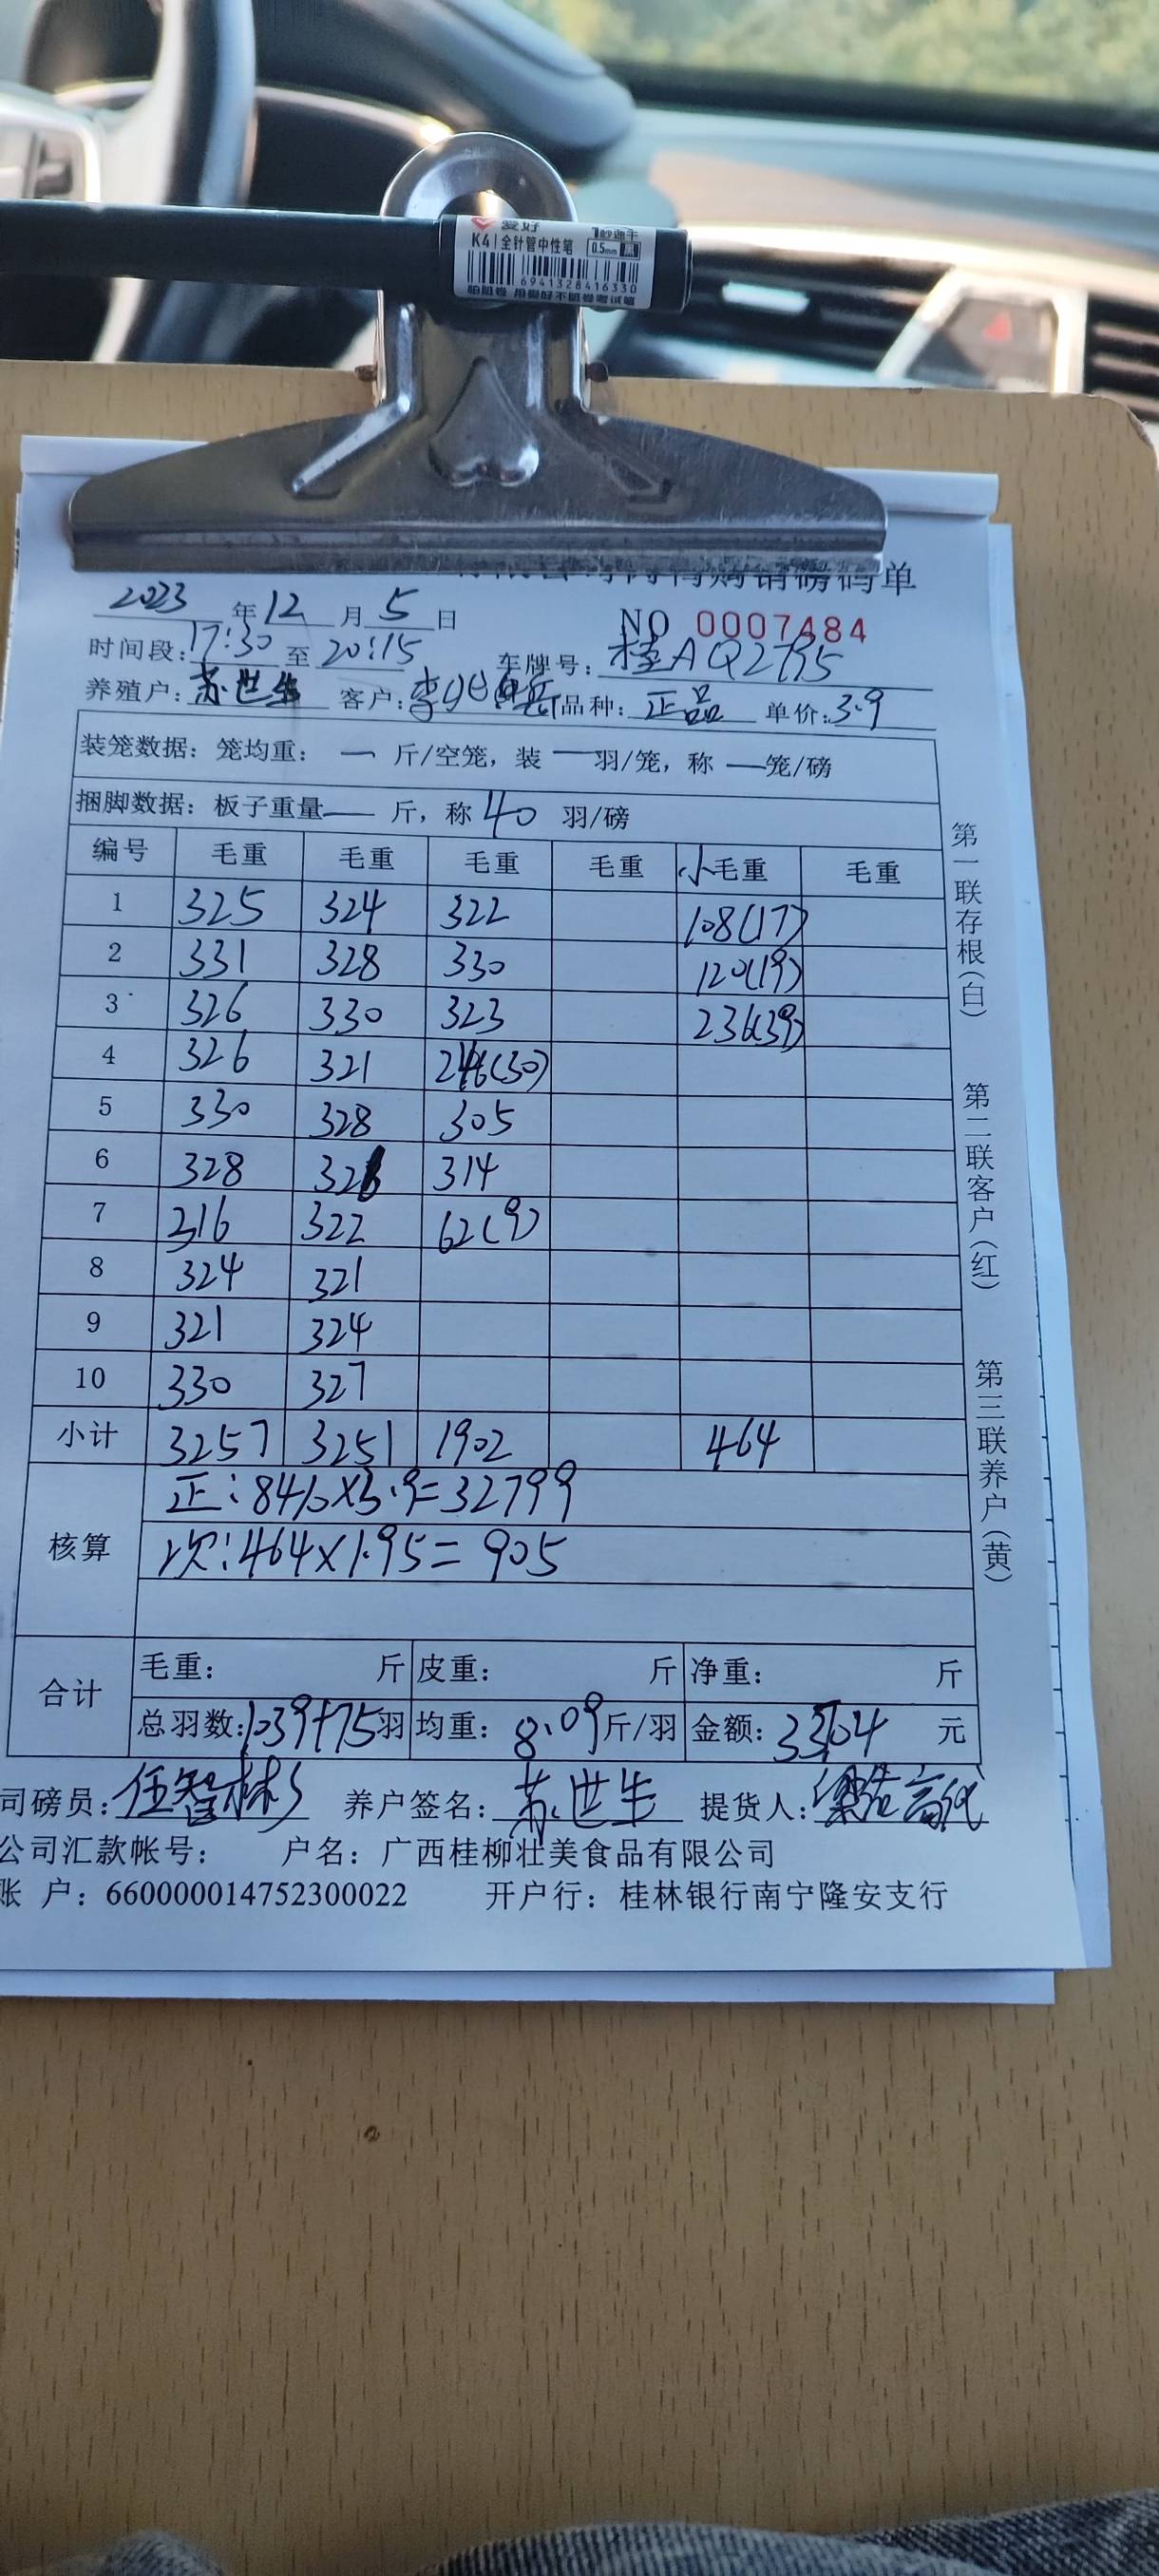 爱好 1秒速干
K4 全针管中性笔 0.5mm 黑
6941328416330
怕脏卷 用爱好不脏卷考试笔
购销磅码单
2023年12月5日 NO 0007484
时间段:17:30至20:15 车牌号:桂AQ2795
养殖户:苏世生 客户:李 品种:正品 单价:3.9
装笼数据: 笼均重: 一 斤/空笼, 装 一 羽/笼, 称 一 笼/磅
捆脚数据: 板子重量 — 斤, 称 40 羽/磅
编号 毛重 毛重 毛重 毛重 小毛重 毛重
1 325 324 322 108(17)
2 331 328 330 120(19)
3 326 330 323 236(39)
4 326 321 246(30)
5 330 328 305
6 328 326 314
7 316 322 62(9)
8 324 321
9 321 324
10 330 327
小计 3257 3251 1902 464
核算 正:8410×3.9=32799
次:464×1.95=905
合计 毛重: 斤 皮重: 斤 净重: 斤
总羽数:1039+75羽 均重: 8.09斤/羽 金额: 33704 元
司磅员:任智彬 养户签名:苏世生 提货人:
公司汇款帐号: 户名: 广西桂柳壮美食品有限公司
账 户: 660000014752300022 开户行: 桂林银行南宁隆安支行
第一联存根(白)
第二联客户(红)
第三联养户(黄)